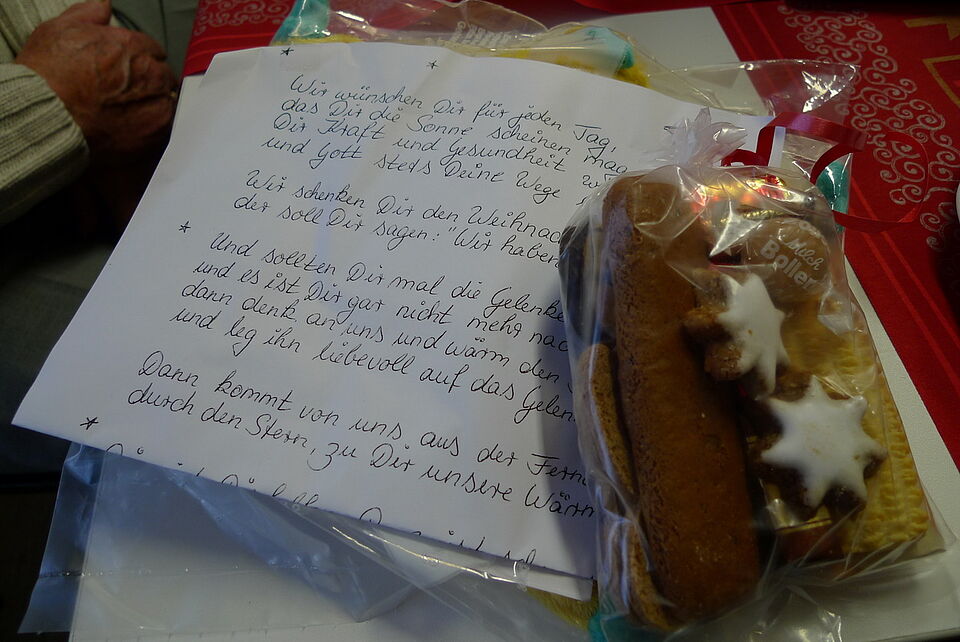 Wir wünschen Dir für jeden Tag,
das Dir die Sonne scheinen mag
Dir Kraft und Gesundheit
und Gott stets Deine Wege
Wir schenken Dir den
der soll Dir sagen: "Wir haben
Und sollten Dir mal die
und es ist Dir gar nicht mehr
dann denk an uns und wärm den
und leg ihn liebevoll auf das
Dann kommt von uns aus der
durch den Stern, zu Dir unsere
Milch
Boller